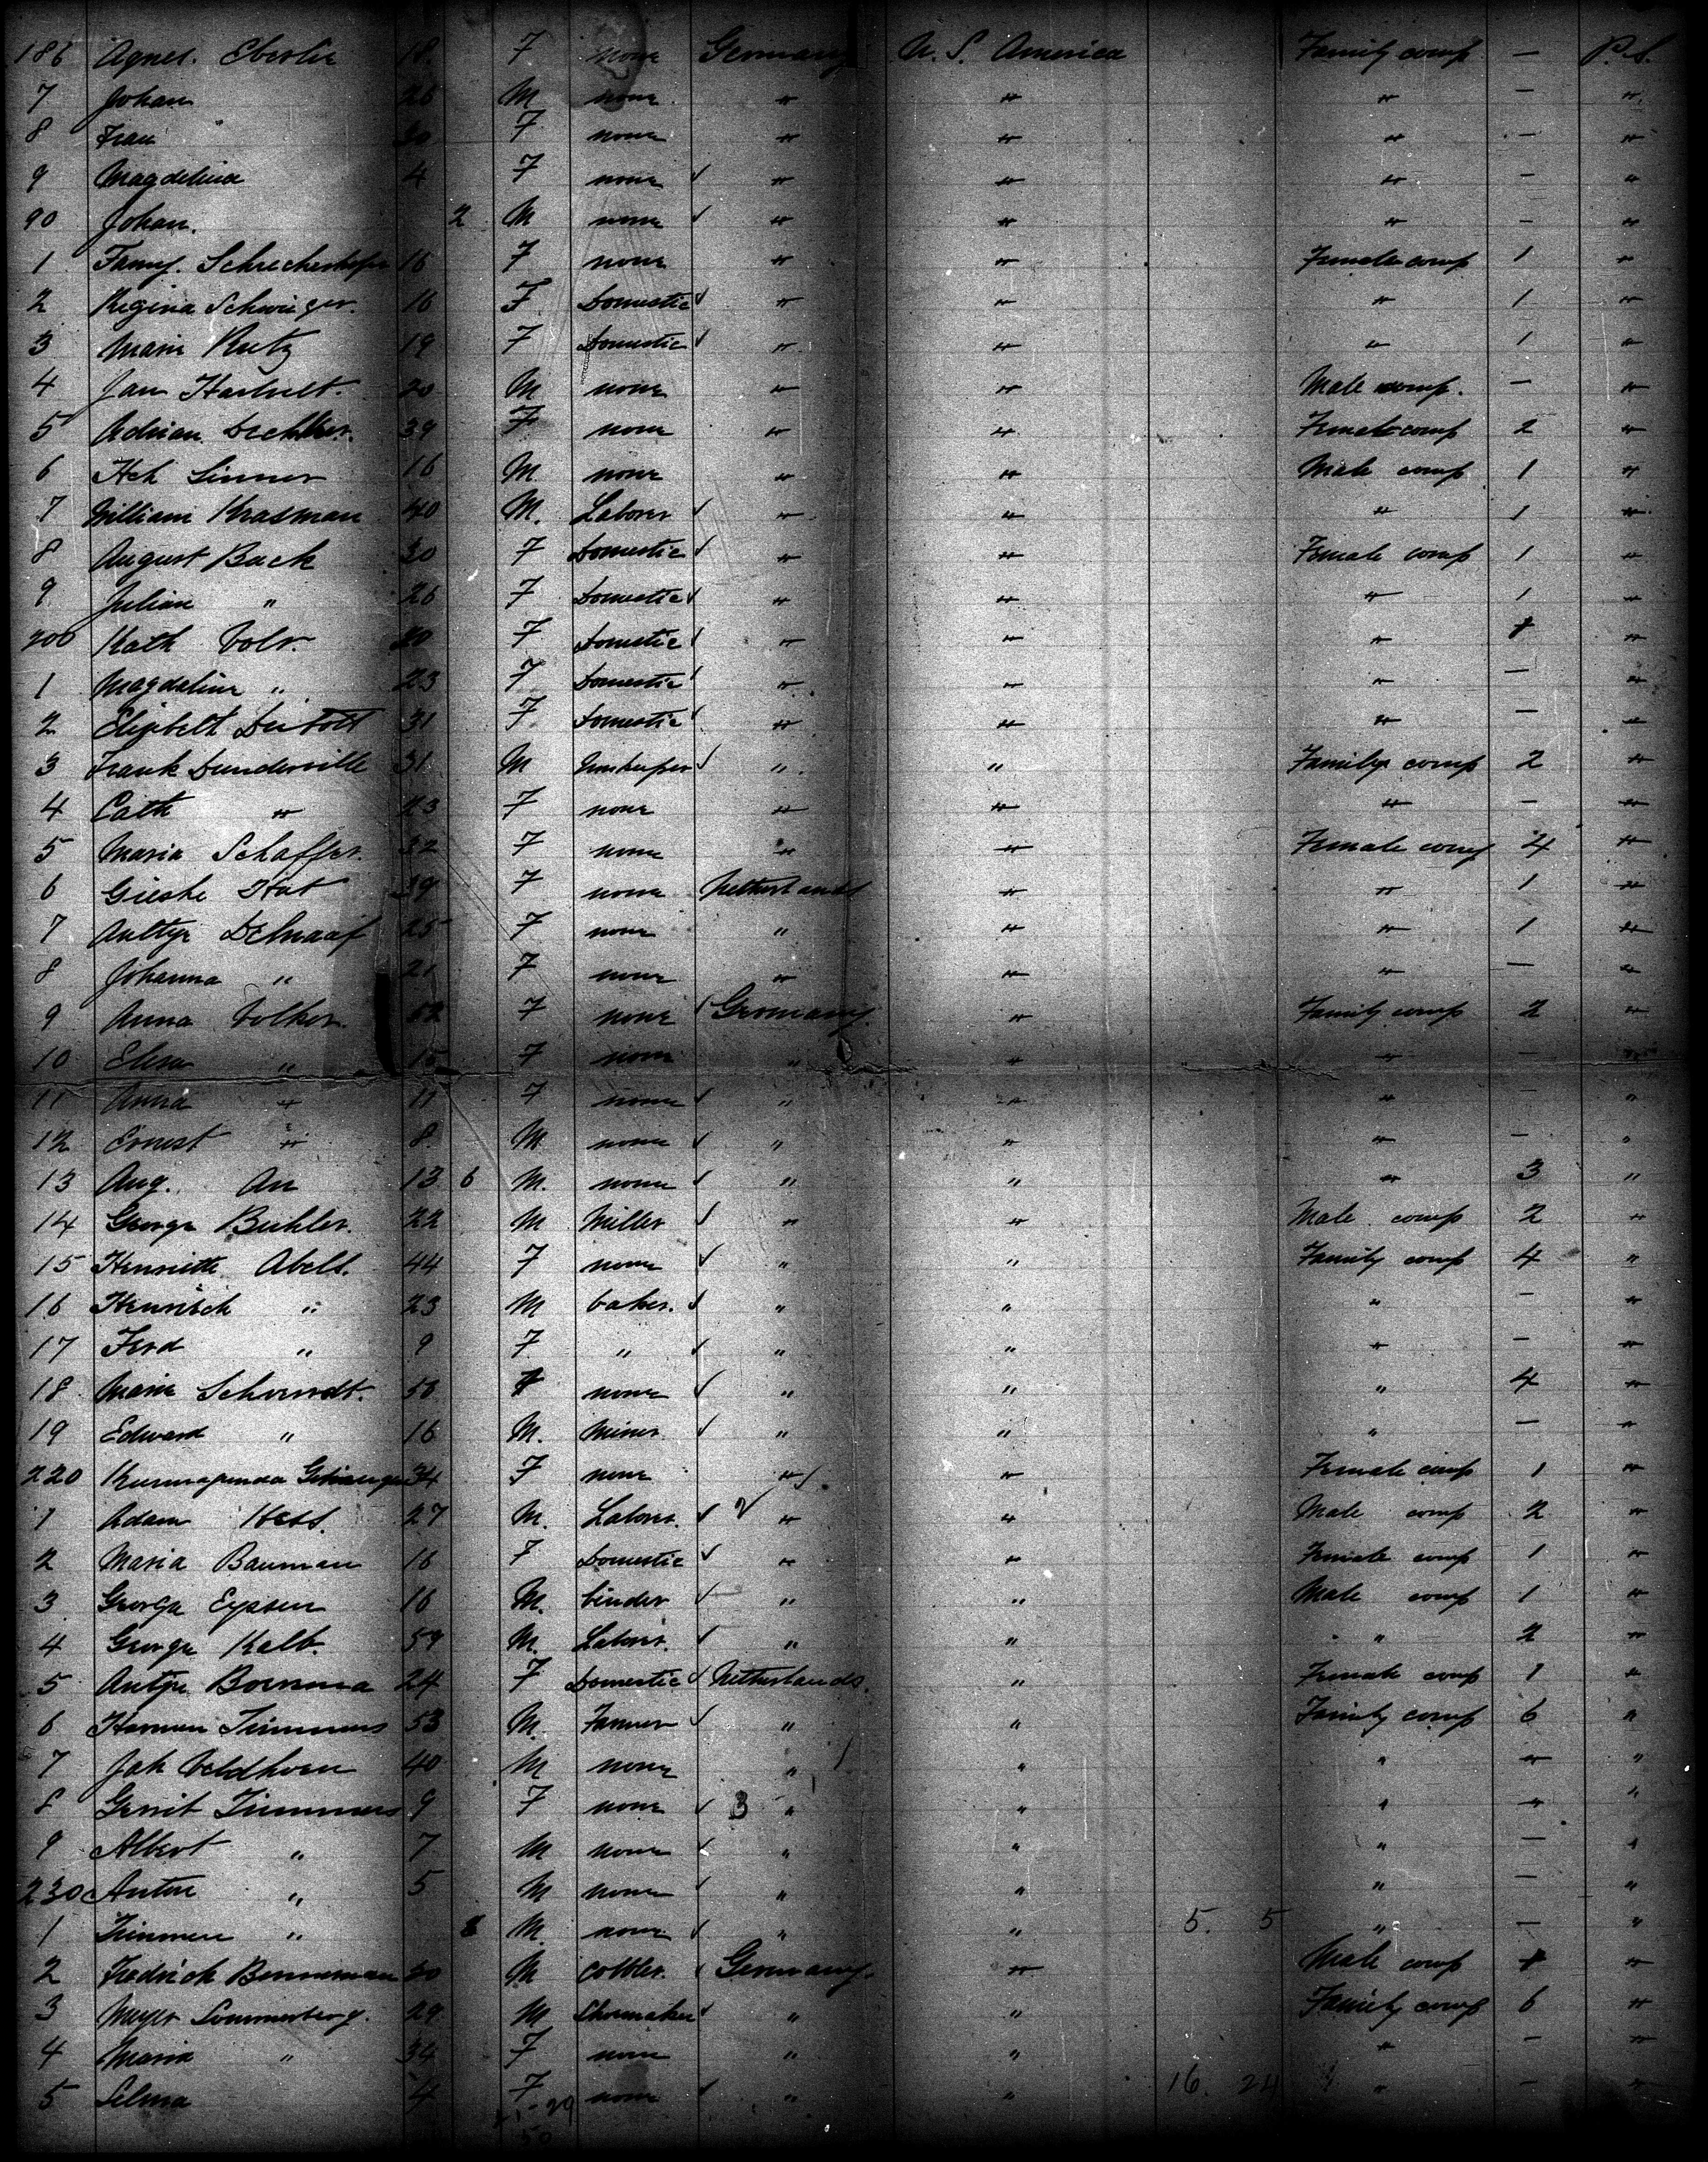 186 Agnes. Eberlie 18. F none Germany U. S. America Family comp — P.S.
7 Johan 26 M none. " " " — "
8 Frau 30 F none " " " — "
9 Magdelina 4 F none ✓ " " " — "
90 Johan. 2 M none ✓ " " " — "
1 Fanny. 16 F none " " Female comp 1 "
2 Regina Schwieger. 16 F Domestic ✓ " " " 1 "
3 Marie Rutz 19 F Domestic ✓ " " " 1 "
4 Jan Hartvelt. 20 M none " " Male comp. — "
5 Adrian 39 F none " " Female comp 2 "
6 Hch Sinner 16 M. none " " Male comp 1 "
7 William Krasman 40 M. Laborer ✓ " " " 1 "
8 August Back 30 F Domestic ✓ " " Female comp 1 "
9 Julian " 26 F Domestic ✓ " " " 1 "
200 Kath Volr. 20 F Domestic ✓ " " " 1 "
1 Magdaline " 23 F Domestic ✓ " " " — "
2 31 F Domestic ✓ " " " — "
3 Frank Dunderville 31 M ✓ " " Family comp 2 "
4 Cath " 23 F none " " " — "
5 Maria Schaffer. 32 F none " " Female comp 4 "
6 Gieshe Hat 39 F none Netherlands " " 1 "
7 25 F none " " " 1 "
8 Johanna " 21 F none " " " — "
9 Anna Volker. 52 F none ✓ Germany. " Family comp 2 "
10 Elisa " 15 F none " " " — "
11 Anna " 11 F none ✓ " " " — "
12 Ernest " 8. M none ✓ " " " — "
13 Aug. An 13 6 M. none ✓ " " " 3 "
14 George Buhler. 22 M Miller ✓ " " Male comp 2 "
15 Henriette Abelt. 44 F none ✓ " " Family comp 4 "
16 Henrisch " 23 M baker. ✓ " " " — "
17 Ferd " 9 F " ✓ " " " — "
18 Marie Schmidt. 50 F none ✓ " " " 4 "
19 Edward " 16 M. Miner ✓ " " " — "
220 34 F none " " Female comp 1 "
1 Adam Hess. 27 M. Laborer. ✓ ✓ " " Male comp 2 "
2 Maria Bauman 16 F Domestic ✓ " " Female comp 1 "
3 George Eyssen 16 M. binder ✓ " " Male comp 1 "
4 George Kalb. 59 M. Laborer. ✓ " " " 2 "
5 Antje Borsma 24 F Domestic ✓ Netherlands. " Female comp 1 "
6 Harmen Timmers 53 M. Farmer ✓ " " Family comp 6 "
7 Jak Veldhoen 40 M none " " " " "
8 Gerrit Timmers 9 F none ✓ 3 " " " " "
9 Albert " 7 M none ✓ " " " — "
230 Anton " 5 M none ✓ " " " — "
1 " M. none ✓ " " 5. 5 " — "
2 Fredrick Benneman 20 M cobbler. ✓ Germany. " Male comp 1 "
3 Meyer Sommerberg. 29 M Shoemaker ✓ " " Family comp 6 "
4 Maria " 34 F none " " " — "
5 Selma 4 F none ✓ " " 16. 24 " — "
29
50